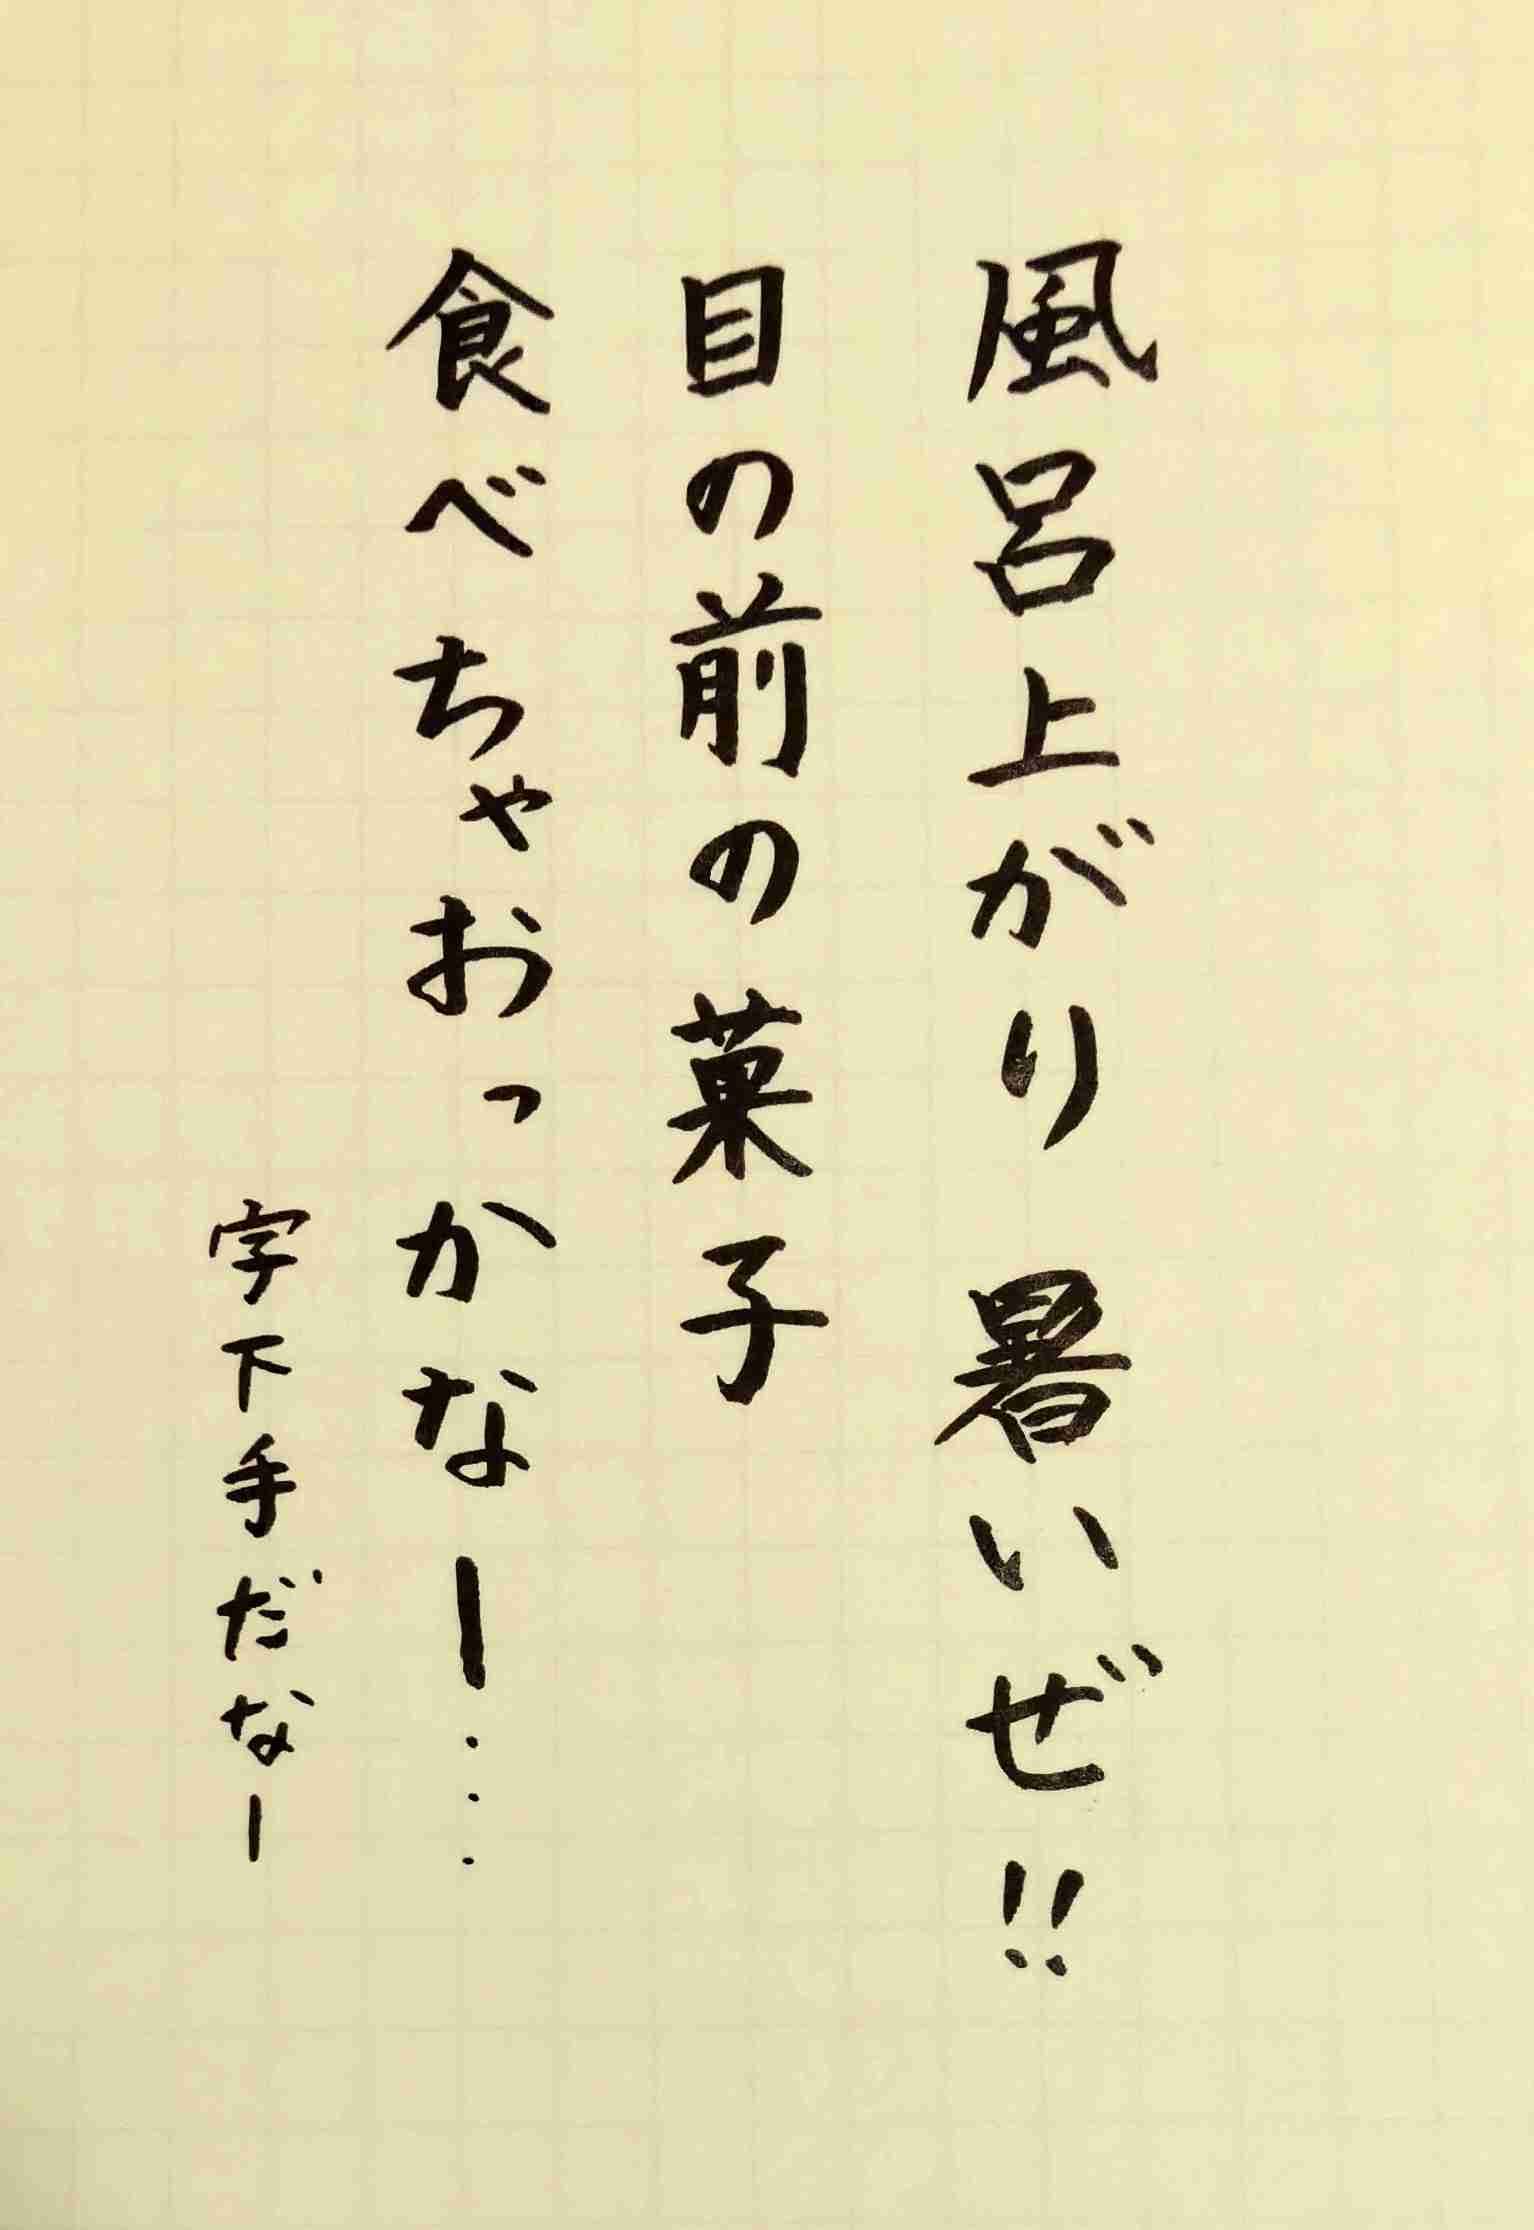 風呂上がり 暑いぜ!!
目の前の菓子
食べちゃおっかなー…
字下手だなー